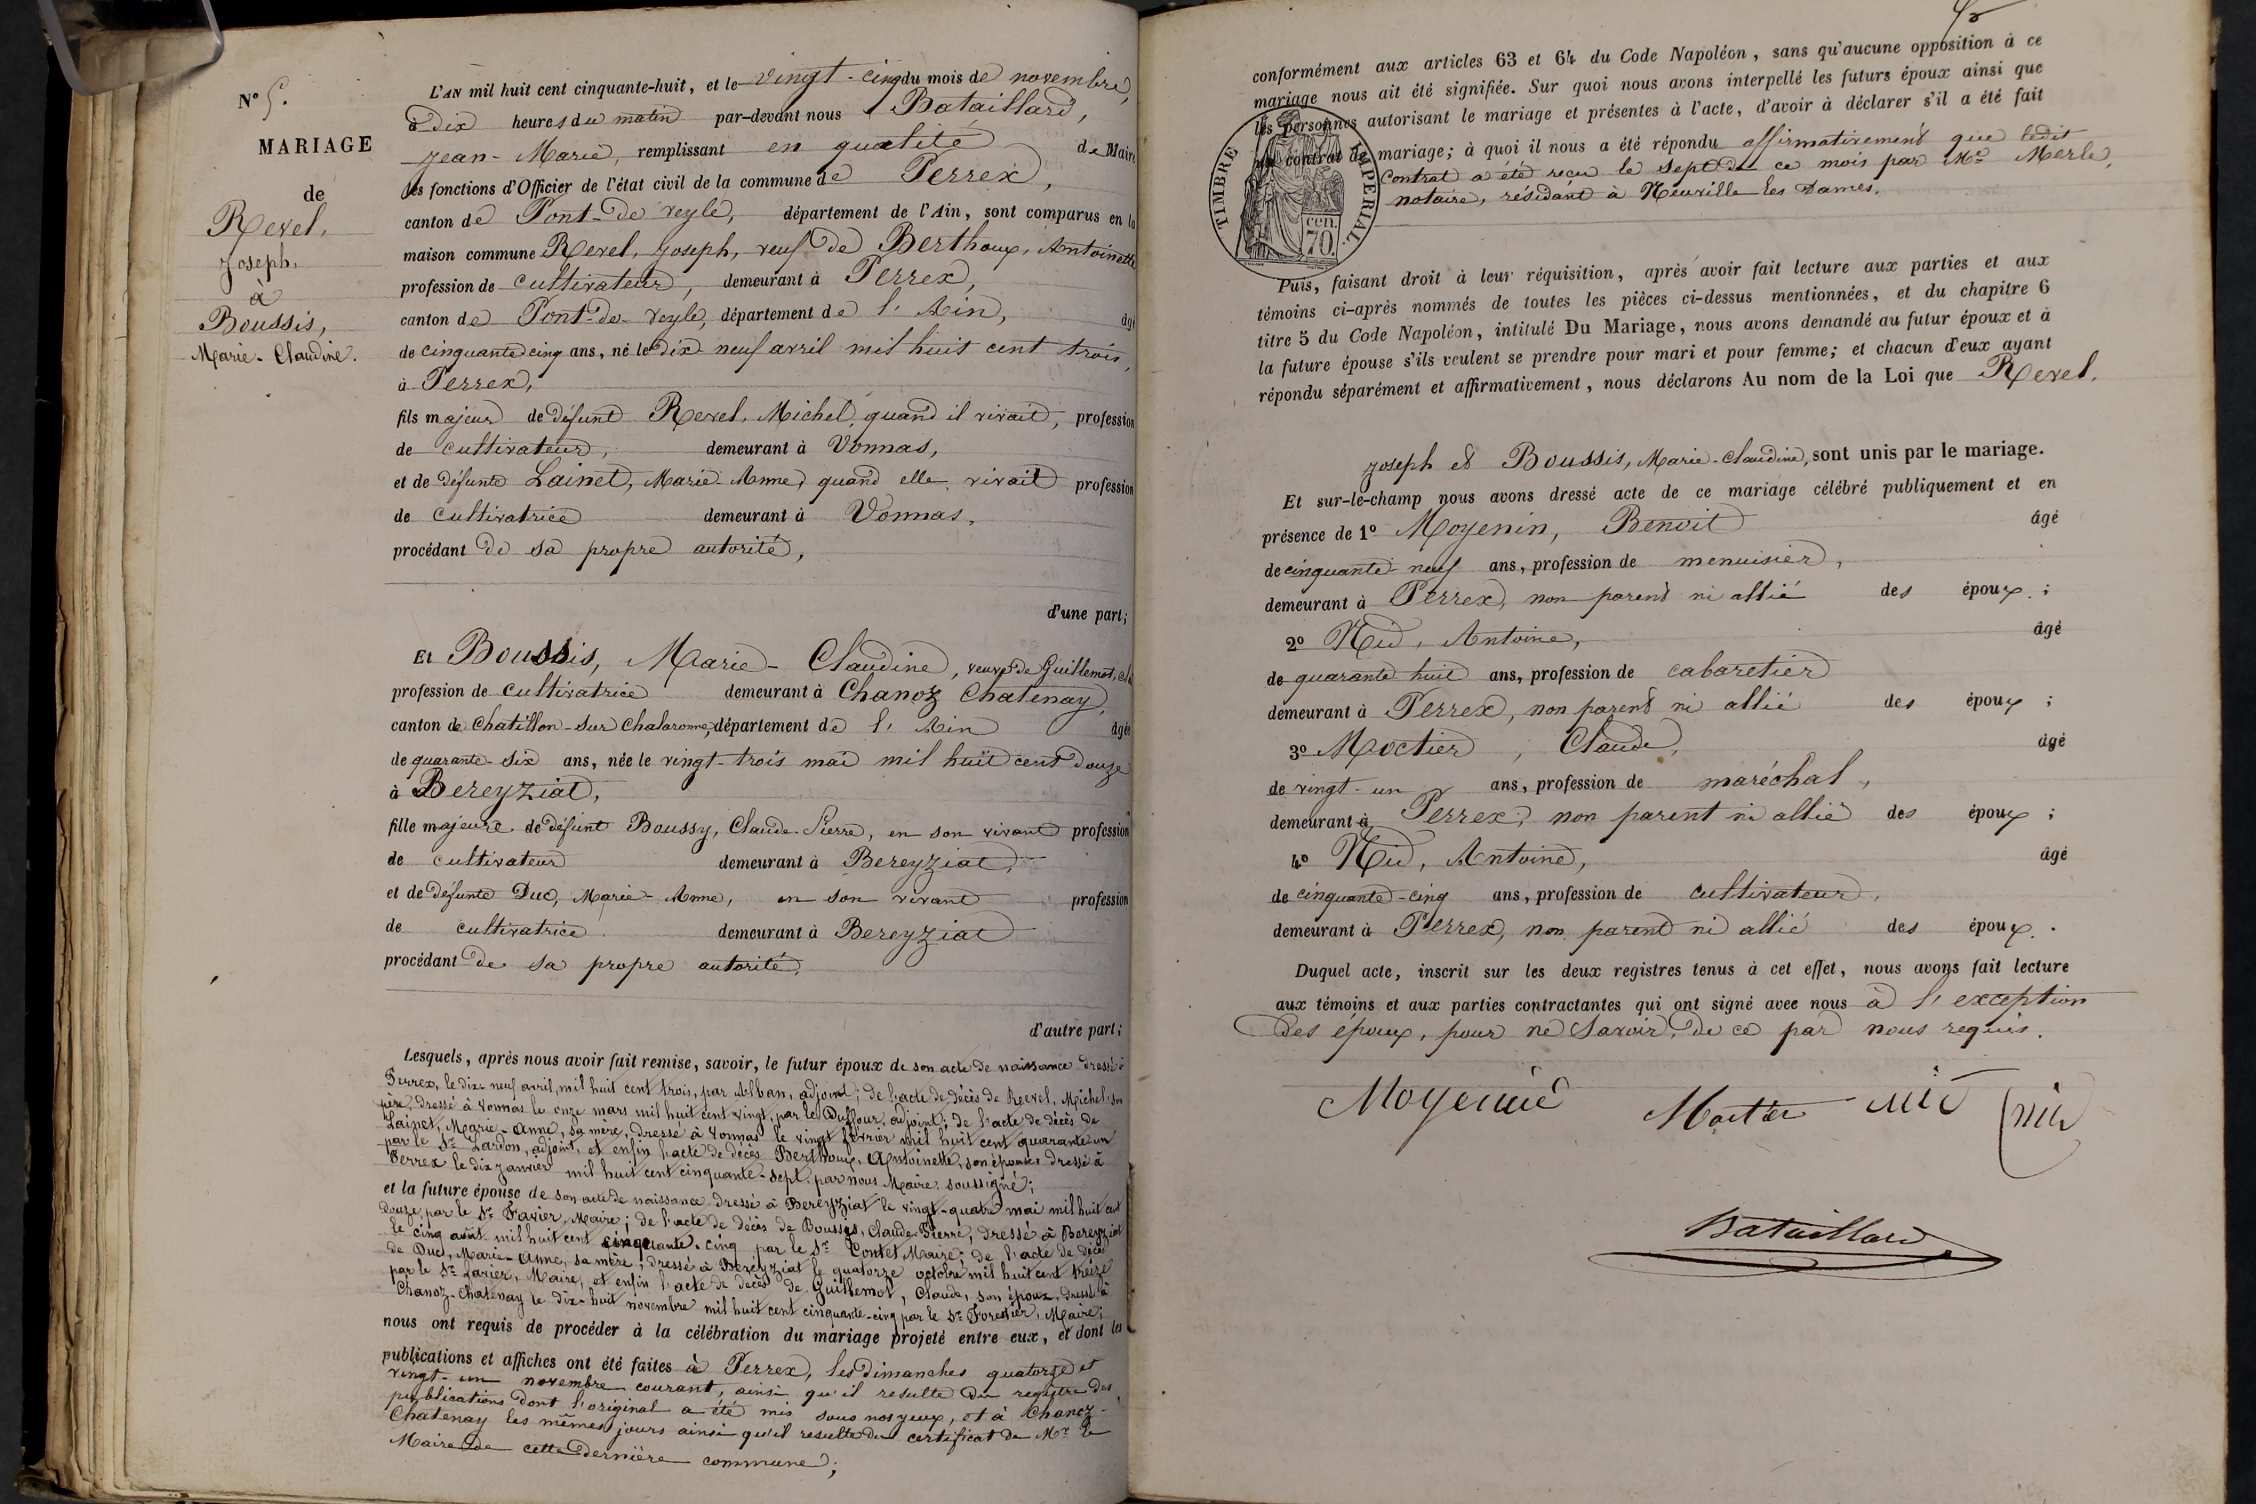 N° 5.
MARIAGE
de
Revel,
Joseph,
à
Boussis,
Marie-Claudine.
L'AN mil huit cent cinquante-huit, et le vingt-cinq du mois de novembre,
à dix heures du matin par-devant nous Bataillard,
Jean-Marie, remplissant en qualité de Maire
les fonctions d'Officier de l'état civil de la commune de Perrex,
canton de Pont-de-Veyle, département de l'Ain, sont comparus en la
maison commune Revel, Joseph, veuf de Berthoux, Antoinette
profession de cultivateur, demeurant à Perrex,
canton de Pont-de-Veyle, département de l'Ain, âgé
de cinquante cinq ans, né le dix-neuf avril mil huit cent trois,
à Perrex,
fils majeur de défunt Revel, Michel, quand il vivait, profession
de cultivateur, demeurant à Vonnas,
et de défunte Lainet, Marie-Anne, quand elle vivait profession
de cultivatrice demeurant à Vonnas,
procédant de sa propre autorité,
d'une part;
Et Boussis, Marie-Claudine, veuve de Guillemot,
profession de cultivatrice demeurant à Chanoz Chatenay,
canton de Chatillon-sur Chalaronne, département de l'Ain âgée
de quarante-six ans, née le vingt-trois mai mil huit cent douze
à Bereyziat,
fille majeure de défunt Boussy, Claude-Pierre, en son vivant profession
de cultivateur demeurant à Bereyziat,
et de défunte Duc, Marie-Anne, en son vivant profession
de cultivatrice demeurant à Bereyziat
procédant de sa propre autorité,
d'autre part;
Lesquels, après nous avoir fait remise, savoir, le futur époux de son acte de naissance dressé à
Perrex, le dix-neuf avril, mil huit cent trois, par Alban, adjoint; de l'acte de décès de Revel, Michel son
père, dressé à Vonnas le onze mars mil huit cent vingt, par le Duffour, adjoint; de l'acte de décès de
Lainet, Marie-Anne, sa mère, dressé à Vonnas le vingt février mil huit cent quarante un
par le Sr Lardon, adjoint, et enfin l'acte de décès Berthoux, Antoinette, son épouse dressé à
Perrex le dix janvier mil huit cent cinquante-sept, par nous Maire soussigné;
et la future épouse de son acte de naissance dressé à Bereyziat le vingt-quatre mai mil huit cent
douze, par le Sr Favier, Maire; de l'acte de décès de Boussys, Claude-Pierre, dressé à Bereyziat
le cinq août mil huit cent cinquante-cinq par le Sr Pontet Maire; de l'acte de décès
de Duc, Marie-Anne, sa mère; dressé à Bereyziat le quatorze octobre mil huit cent treize
par le Sr Favier, Maire, et enfin l'acte de décès de Guillemot, Claude, son époux, dressé à
Chanoz-Chatenay le dix-huit novembre mil huit cent cinquante-cinq par le Sr Forestier, Maire;
nous ont requis de procéder à la célébration du mariage projeté entre eux, et dont les
publications et affiches ont été faites à Perrex, les dimanches quatorze et
vingt-un novembre courant, ainsi qu'il resulte du registre des
publications dont l'original a été mis sous nos yeux, et à Chanoz-
Chatenay les mêmes jours ainsi qu'il resulte du certificat de Mr le
Maire de cette dernière commune;
conformément aux articles 63 et 64 du Code Napoléon, sans qu'aucune opposition à ce
mariage nous ait été signifiée. Sur quoi nous avons interpellé les futurs époux ainsi que
les personnes autorisant le mariage et présentes à l'acte, d'avoir à déclarer s'il a été fait
un contrat de mariage; à quoi il nous a été répondu affirmativement que ledit
contrat a été reçu le sept de ce mois par Me Merle,
notaire, résidant à Neuville les Dames.
TIMBRE IMPERIAL
cen.
70.
Puis, faisant droit à leur réquisition, après avoir fait lecture aux parties et aux
témoins ci-après nommés de toutes les pièces ci-dessus mentionnées, et du chapitre 6
titre 5 du Code Napoléon, intitulé Du Mariage, nous avons demandé au futur époux et à
la future épouse s'ils veulent se prendre pour mari et pour femme; et chacun d'eux ayant
répondu séparément et affirmativement, nous déclarons Au nom de la Loi que Revel,
Joseph et Boussis, Marie-Claudine, sont unis par le mariage.
Et sur-le-champ nous avons dressé acte de ce mariage célébré publiquement et en
présence de 1° Moyenin, Benoit âgé
de cinquante-neuf ans, profession de menuisier,
demeurant à Perrex, non parent ni allié des époux;
2° Nid, Antoine, âgé
de quarante huit ans, profession de cabaretier
demeurant à Perrex, non parent ni allié des époux;
3° Moctier, Claude, âgé
de vingt-un ans, profession de maréchal,
demeurant à Perrex, non parent ni allié des époux;
4° Nid, Antoine, âgé
de cinquante-cinq ans, profession de cultivateur,
demeurant à Perrex, non parent ni allié des époux.
Duquel acte, inscrit sur les deux registres tenus à cet effet, nous avons fait lecture
aux témoins et aux parties contractantes qui ont signé avec nous à l'exception
des époux, pour ne savoir, de ce par nous requis.
Moctier nid nid
Bataillard